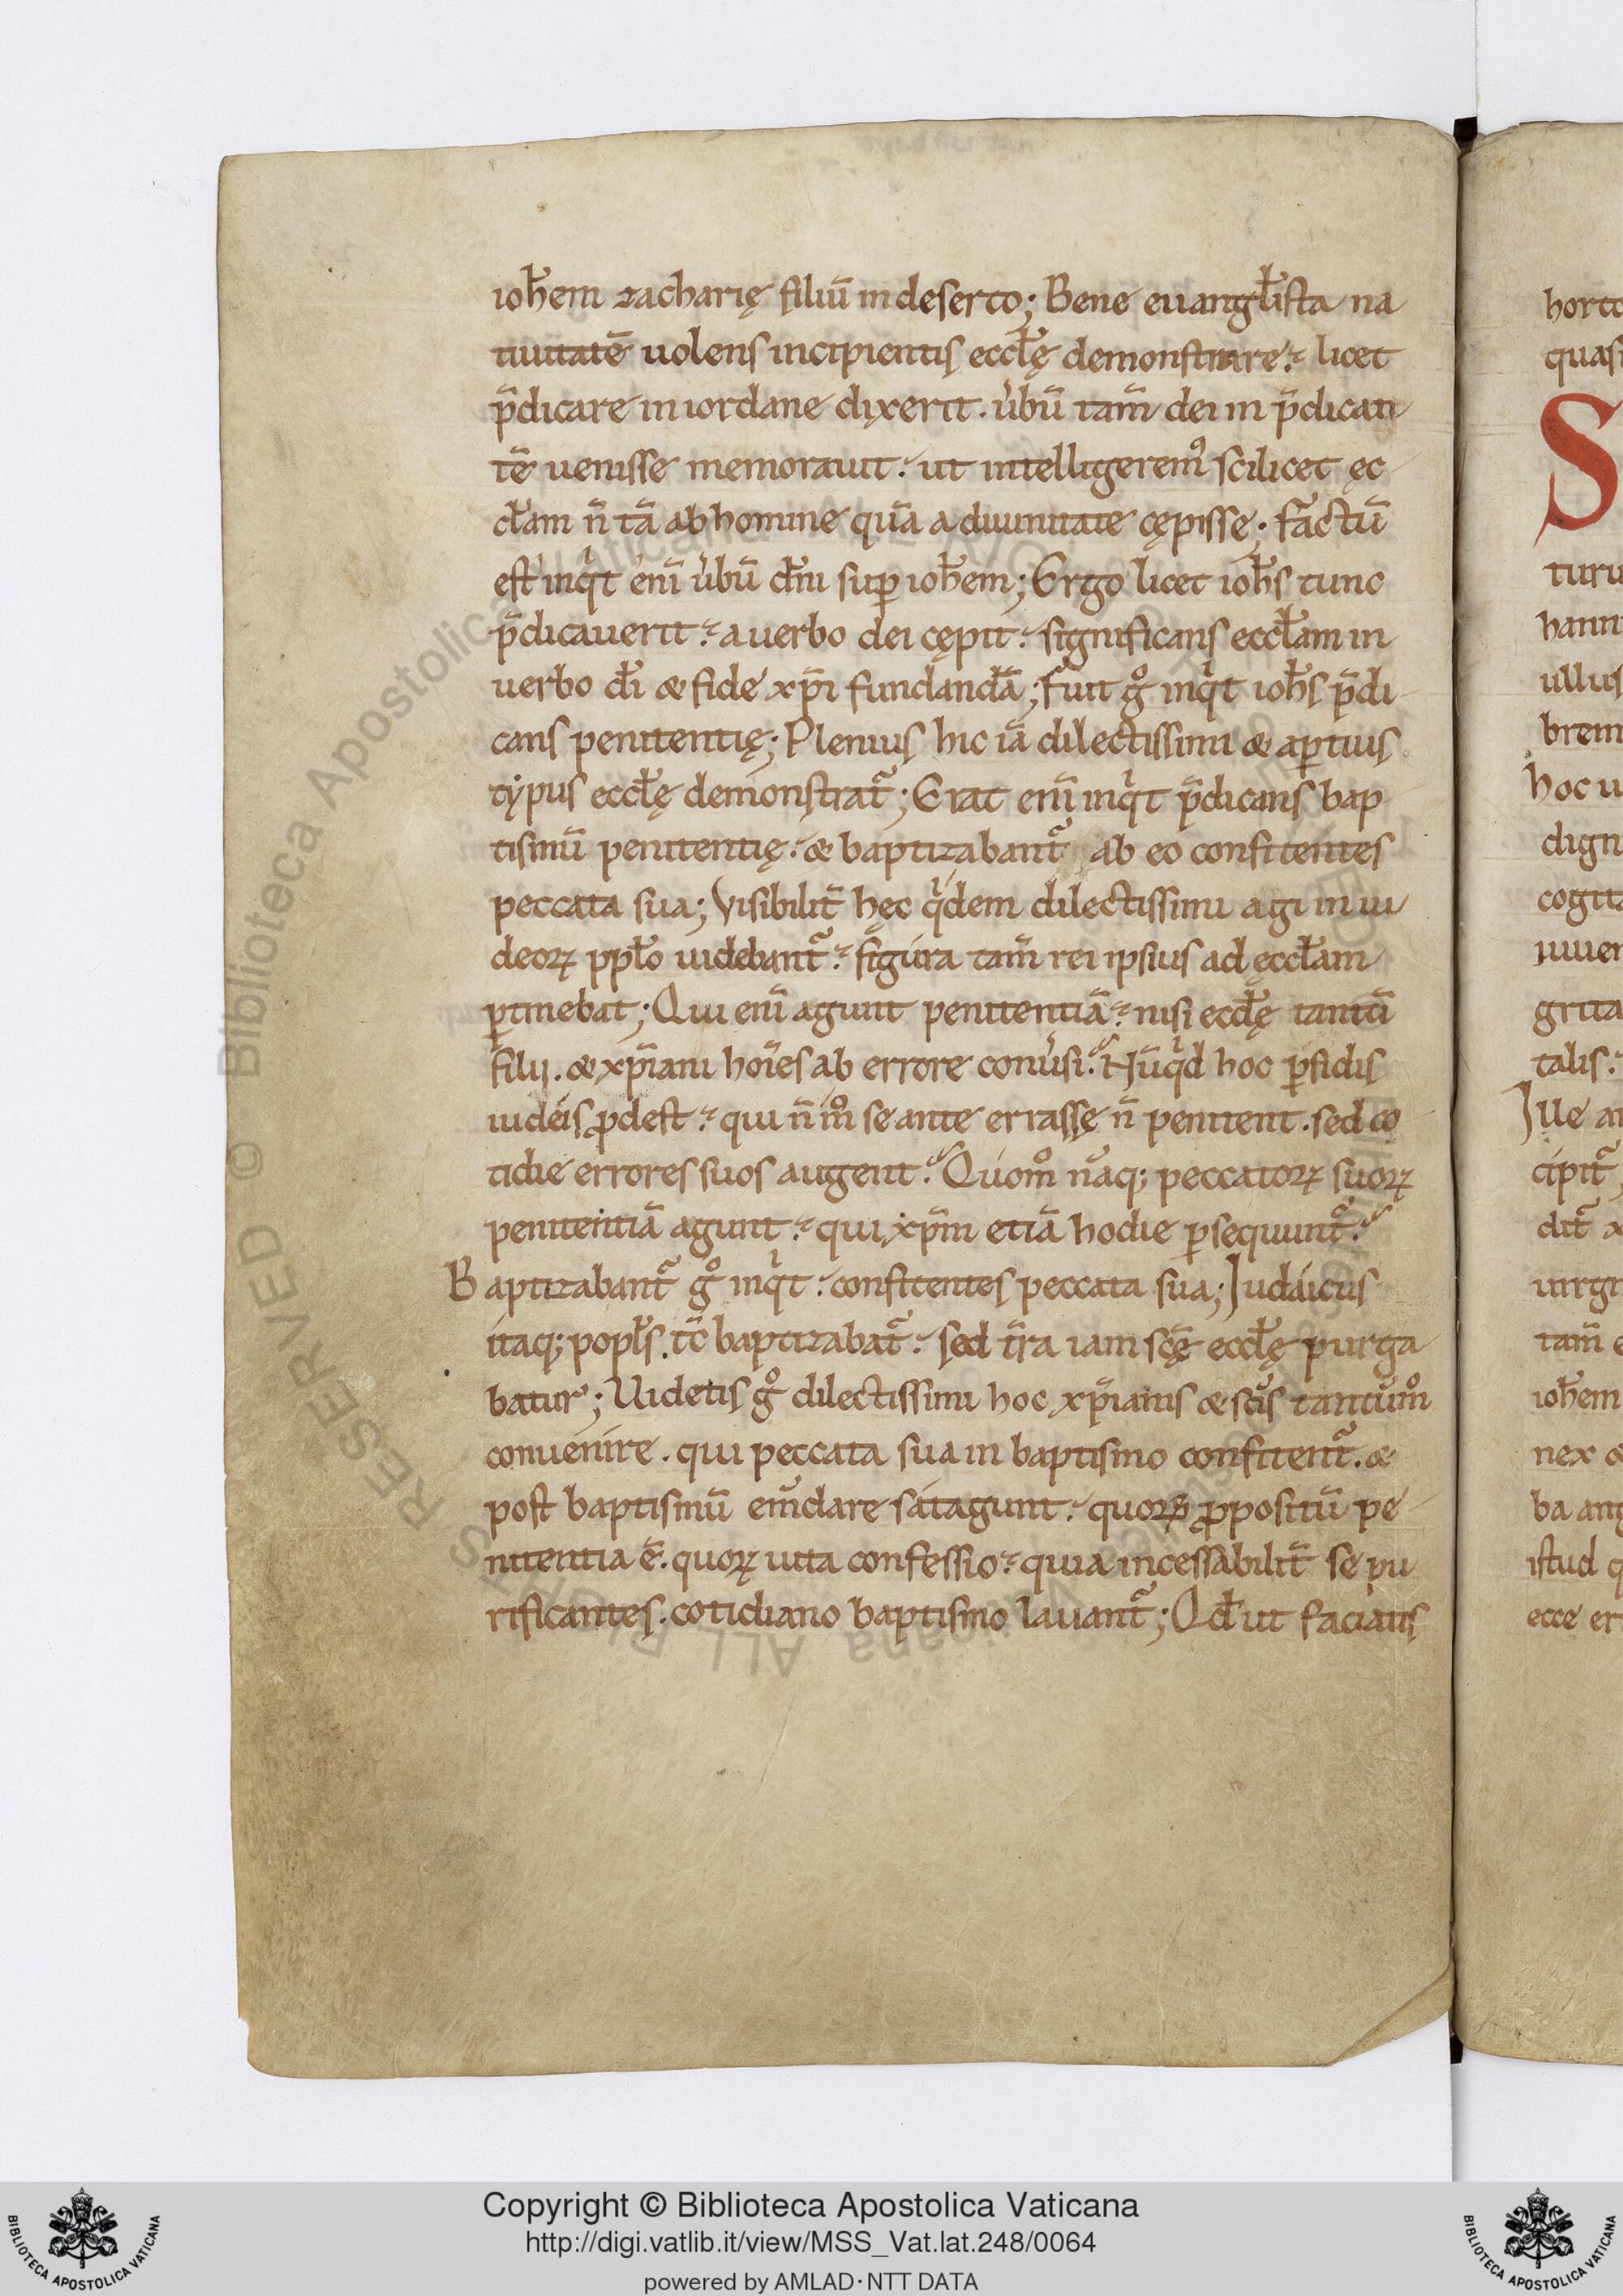 ioh̅em zacharię filiu̅ in deserto; Bene euangl̅ista na
tiuitate̅ uolens incipientis eccl̅ę demonstrare. licet
p̅dicare in iordane dixerit. u̅bu̅ tam̅ dei in p̅dican
te̅ uenisse memorauit. ut intelligeremꝰ scilicet ęc
cl̅am n̅ ta̅ ab homine qua̅ a diuinitate cępisse. factu̅
est inqͥt eni̅ u̅bu̅ dn̅i suꝑ ioh̅em; Ergo licet ioh̅s tunc
p̅dicauerit. a uerbo dei cępit. significans eccl̅am in
uerbo di̅ & fide xp̅i fundanda̅; fuit gͦ inqͥt ioh̅s p̅di
cans penitentię; Plenius hic ia̅ dilectissimi & aꝑtius
typus eccl̅ę demonstrat᷑; Erat eni̅ inqͥt p̅dicans bap
tismu̅ penitentię. & baptizabant᷑ ab eo confitentes
peccata sua; Visibilit̅ hęc qͥdem dilectissimi agi in iu
deoꝝ ppl̅o uidebant᷑. figura tam̅ rei ipsius ad ęccl̅am
ꝑtinebat; Qui eni̅ agunt penitentia̅. nisi eccl̅ę tantu̅
filij. & xp̅iani ho̅ies ab errore conu̅si. Nu̅qͥd hoc ꝑfidis
iudeis ꝓdest. qui n̅ mͦ se ante errasse n̅ penitent. sed co
tidie errores suos augent. Quomͦ na̅q; peccatoꝝ suoꝝ
penitentia̅ agunt. qui xp̅m etia̅ hodie ꝑsequunt᷑.
Baptizabant᷑ gͦ inqͥt. confitentes peccata sua; Iudaicus
itaq; popl̅s. tc̅ baptizabat᷑. sed t̅ra iam sc̅ę eccl̅ę purga
batur; Uidetis gͦ dilectissimi hoc xp̅ianis & sc̅is tantu̅mͦ
conuenire. qui peccata sua in baptismo confitent᷑. &
post baptismu̅ em̅dare satagunt. quoꝝ ꝓpositu̅ pe
nitentia e̅. quoꝝ uita confessio. quia incessabilit̅ se pu
rificantes. cotidiano baptismo lauant᷑; Qd̅ ut faciatis
horto
quasi
S
turu
hann
ullus
brem
hoc u
dign
cogita
iuuen
grita
talis.
Ille an
cipit᷑
dit᷑ x
uirgi
tam̅ e
ioh̅em
nex &
ba ang
istud q
ecce er
Biblioteca Apostolica Vaticana
ALL RIGHTS RESERVED ©
Copyright © Biblioteca Apostolica Vaticana
http://digi.vatlib.it/view/MSS_Vat.lat.248/0064
powered by AMLAD·NTT DATA
BIBLIOTECA APOSTOLICA VATICANA
BIBLIOTECA APOSTOLICA VATICANA